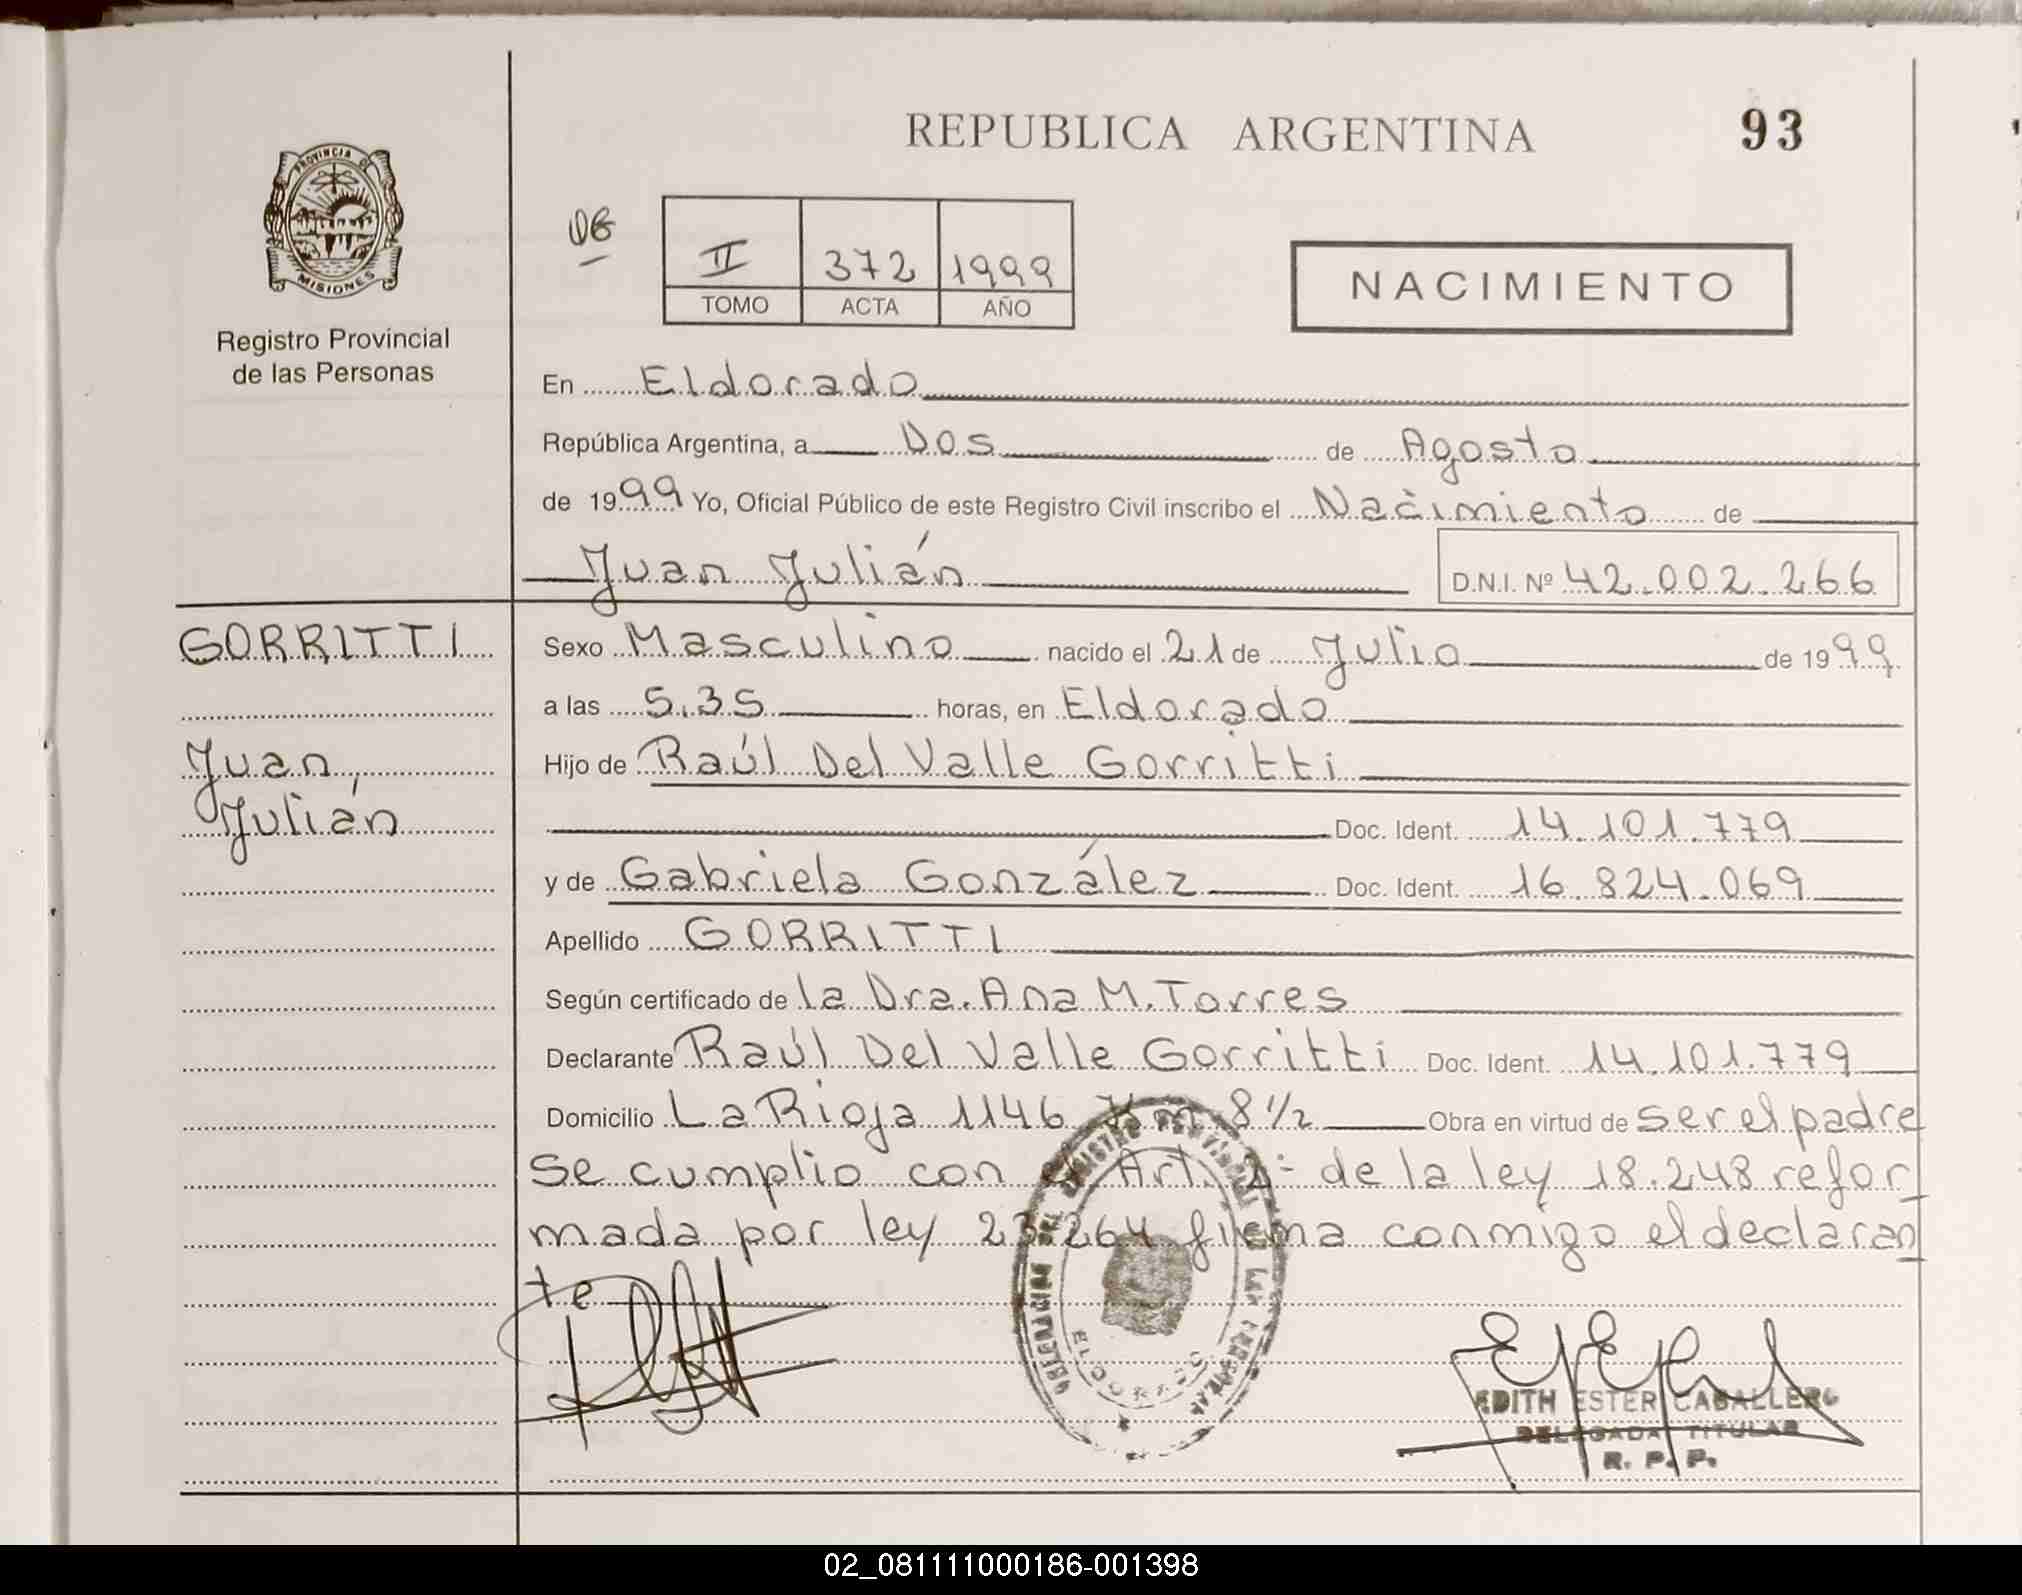 REPUBLICA ARGENTINA
93
PROVINCIA DE
MISIONES
Registro Provincial
de las Personas
II 372 1999
TOMO ACTA AÑO
NACIMIENTO
En Eldorado
República Argentina, a Dos de Agosto
de 1999 Yo, Oficial Público de este Registro Civil inscribo el Nacimiento de
Juan Julián D.N.I. Nº 42.002.266
GORRITTI
Juan,
Julián
Sexo Masculino nacido el 21 de Julio de 1999
a las 5.35 horas, en Eldorado
Hijo de Raúl Del Valle Gorritti
Doc. Ident. 14.101.779
y de Gabriela González Doc. Ident. 16.824.069
Apellido GORRITTI
Según certificado de la Dra. Ana M. Torres
Declarante Raúl Del Valle Gorritti Doc. Ident. 14.101.779
Domicilio La Rioja 1146 Km 8 1/2 Obra en virtud de ser el padre
se cumplio con el Art. 2º de la ley 18.248 refor_
mada por ley 23.264 firma conmigo el declaran
te
ELDORADO
EDITH ESTER CABALLERO
DELEGADA TITULAR
R. P. P.
02_081111000186-001398